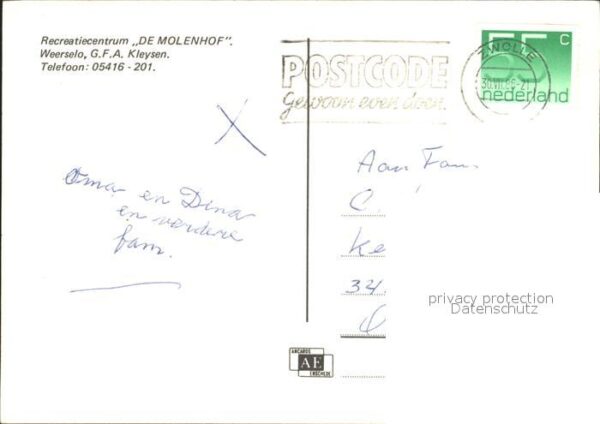 Recreatiecentrum „DE MOLENHOF".
Weerselo, G.F.A. Kleysen.
Telefoon: 05416 - 201.
POSTCODE
Gewoon even doen.
ZWOLLE
55 c
nederland
X
Oma en Dina
en verdere
fam.
Aan Fam.
C.
Ke
34
privacy protection
Datenschutz
ANCARDS
AE
ENSCHEDE